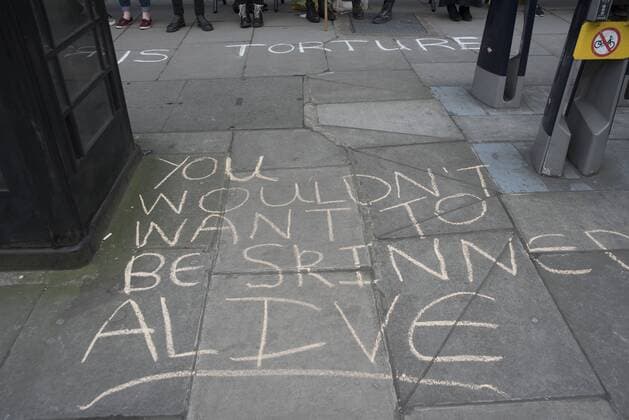 IS TORTURE
YOU
WOULDN'T
WANT TO
BE SKINNED
ALIVE